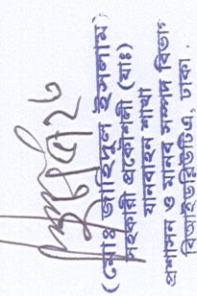 (মোঃ জাহিদুল ইসলাম)
সহকারী প্রকৌশলী (যাঃ)
যানবাহন শাখা
প্রশাসন ও মানব সম্পদ বিভাগ
বিআইডব্লিউটিএ, ঢাকা.